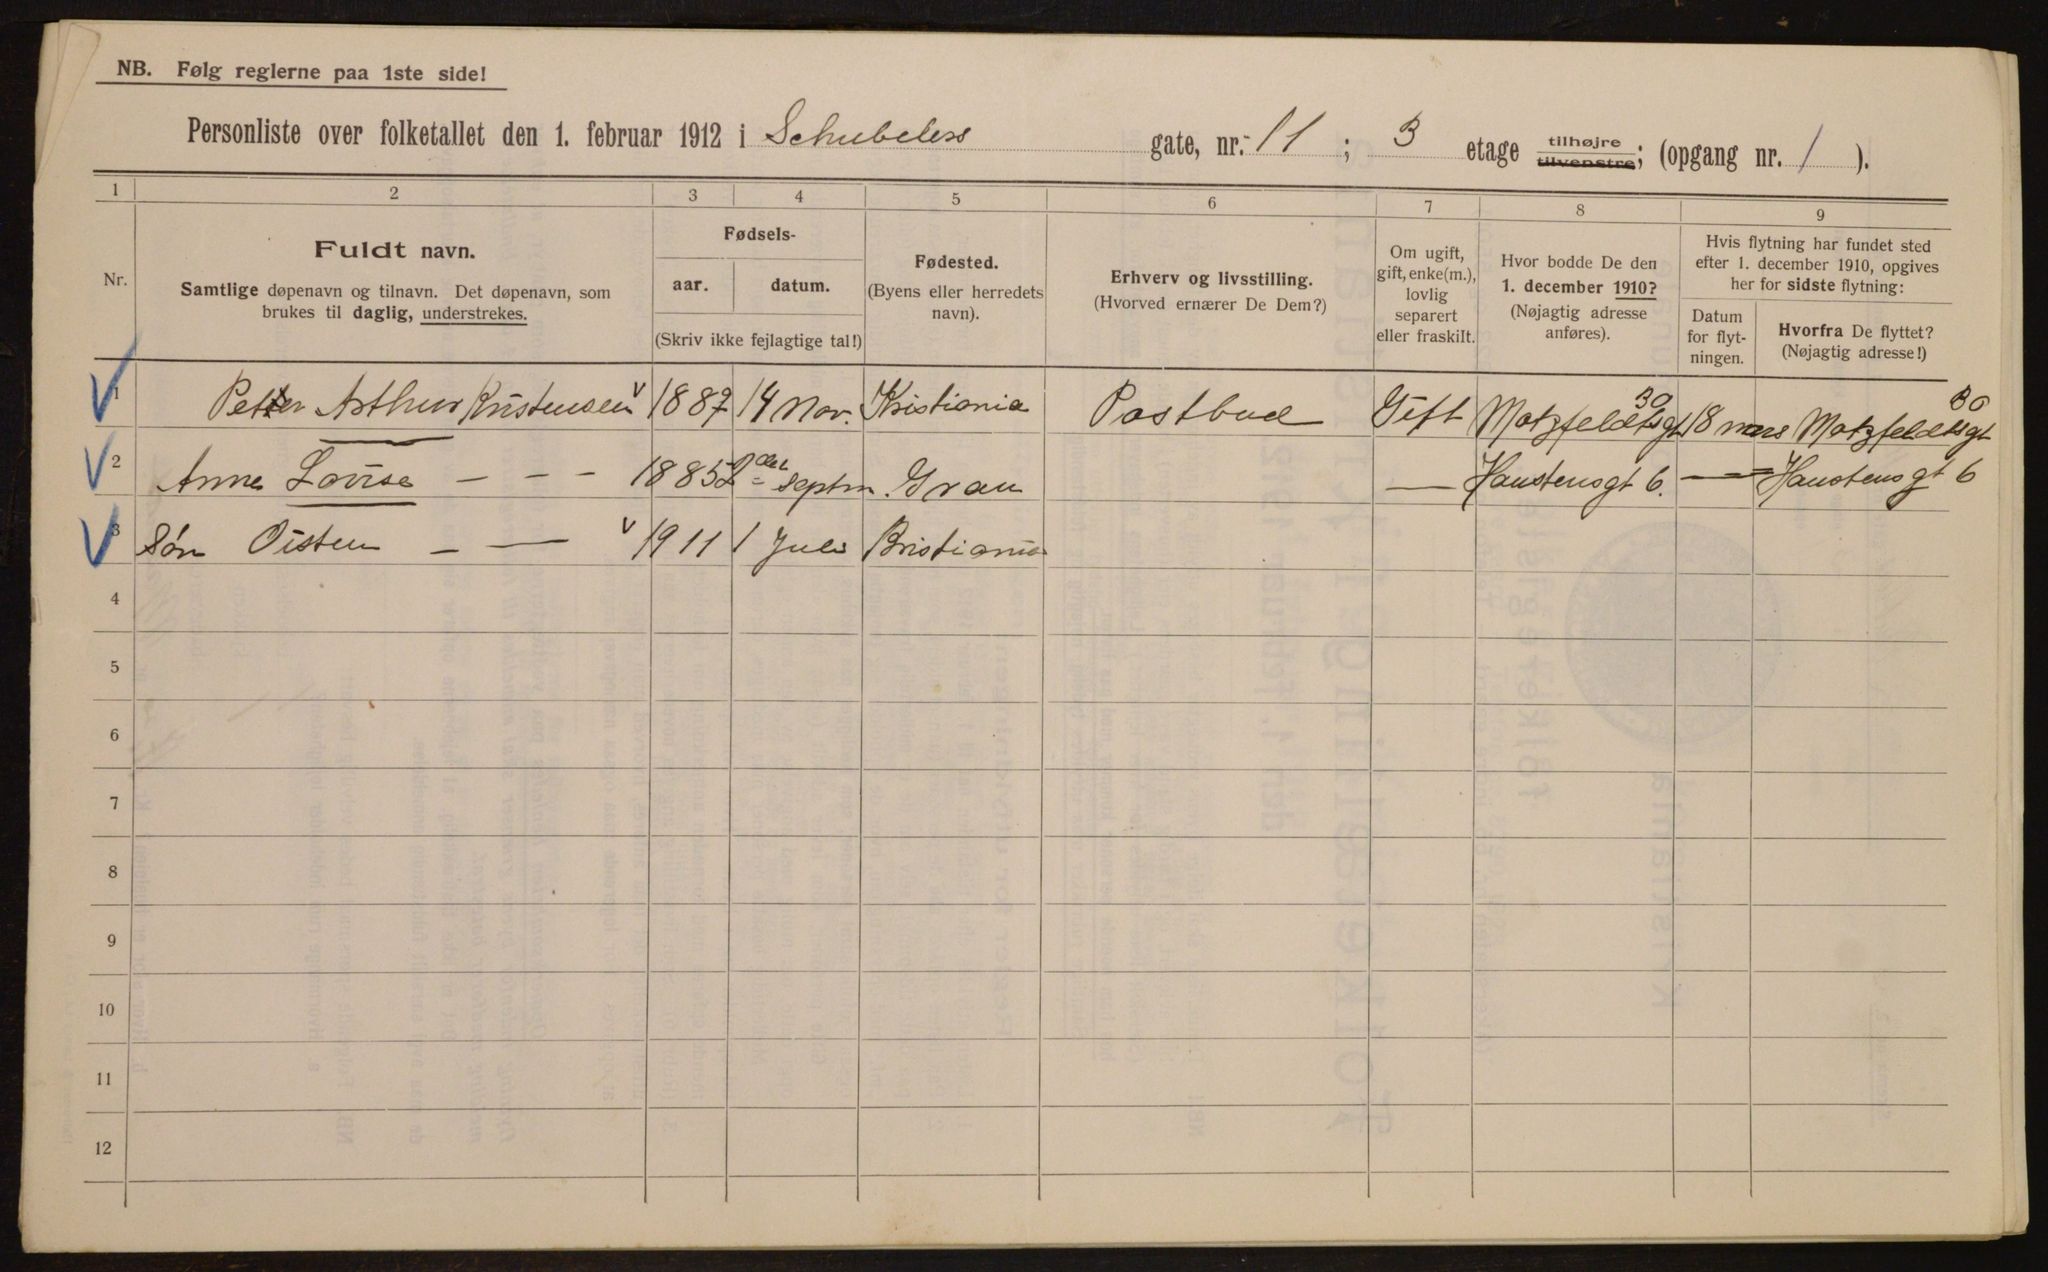 NB. Følg reglerne paa 1ste side!
Personliste over folketallet den 1. februar 1912 i Schubelers gate, nr. 11; 3 etage tilhøjre tilvenstre; (opgang nr. 1).
1 2 3 4 5 6 7 8 9
Nr.
Fuldt navn.
Samtlige døpenavn og tilnavn. Det døpenavn, som
brukes til daglig, understrekes.
Fødsels-
aar. datum.
(Skriv ikke fejlagtige tal!)
Fødested.
(Byens eller herredets
navn).
Erhverv og livsstilling.
(Hvorved ernærer De Dem?)
Om ugift,
gift, enke(m.),
lovlig
separert
eller fraskilt.
Hvor bodde De den
1. december 1910?
(Nøjagtig adresse
anføres).
Hvis flytning har fundet sted
efter 1. december 1910, opgives
her for sidste flytning:
Datum
for flyt-
ningen.
Hvorfra De flyttet?
(Nøjagtig adresse!)
1 Petter Arthur Kristensen 1887 14 Nov. Kristiania Postbud Gift Motzfeldtsgt 30 18 mars Motzfeldtsgt 30
2 Anne Lovise – – – 1885 2det septm. Gran — Haustensgt 6. — Haustensgt 6
3 Søn Oisten – — 1911 1 Kristiania
4
5
6
7
8
9
10
11
12